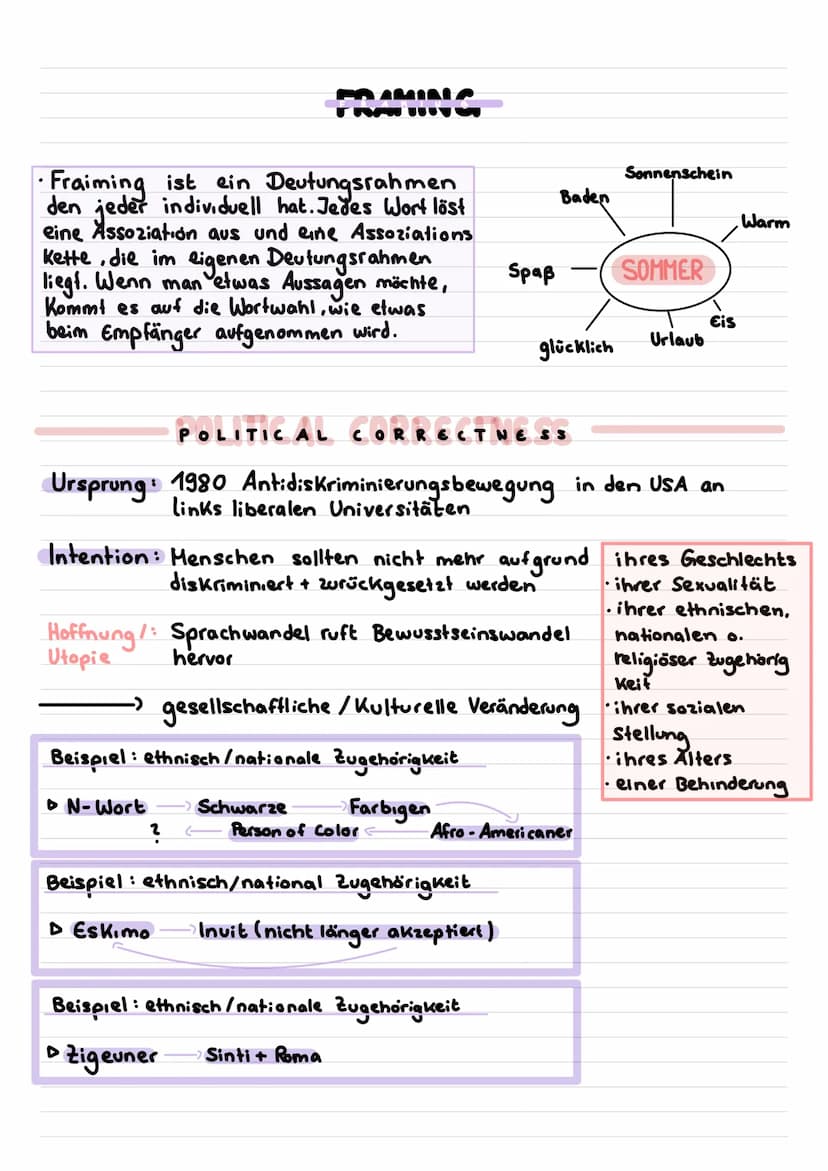 FRAMING
· Fraiming ist ein Deutungsrahmen
den jeder individuell hat. Jedes Wort löst
eine Assoziation aus und eine Assoziations
Kette, die im eigenen Deutungsrahmen
liegt. Wenn man etwas Aussagen möchte,
Kommt es auf die Wortwahl, wie etwas
beim Empfänger aufgenommen wird.
Sonnenschein
Baden
Warm
Spaß
SOMMER
Eis
Urlaub
glücklich
POLITICAL CORRECTNESS
Ursprung: 1980 Antidiskriminierungsbewegung in den USA an
links liberalen Universitäten
Intention: Menschen sollten nicht mehr aufgrund
diskriminiert + zurückgesetzt werden
ihres Geschlechts
· ihrer Sexualität
· ihrer ethnischen,
nationalen o.
religiöser Zugehörig
Keit
· ihrer sozialen
Stellung
· ihres Alters
· einer Behinderung
Hoffnung/: Sprachwandel ruft Bewusstseinswandel
Utopie hervor
gesellschaftliche / Kulturelle Veränderung
Beispiel: ethnisch/nationale Zugehörigkeit
▷ N-Wort → Schwarze → Farbigen
? ← Person of Color ← Afro-Americaner
Beispiel: ethnisch/national Zugehörigkeit
▷ Eskimo → Inuit (nicht länger akzeptiert)
Beispiel: ethnisch/nationale Zugehörigkeit
▷ Zigeuner → Sinti + Roma